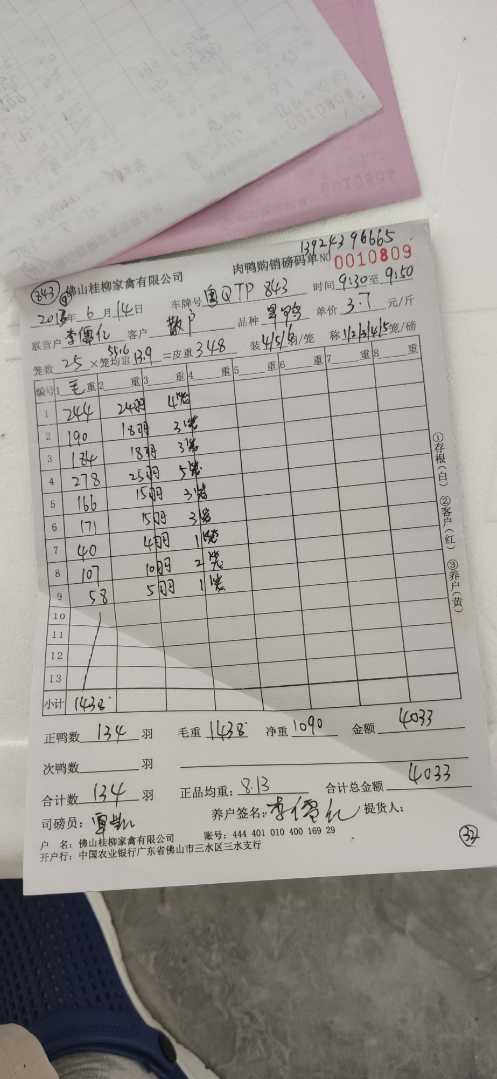 13924396665
843 佛山桂柳家禽有限公司 肉鸭购销磅码单 NO 0010809
年6月14日 车牌号 粤QTP 843 时间 9:30至9:50
联营户 客户 散户 品种 单价 3.7 元/斤
笼数 25 ×笼均重 13.9 =皮重 348 装4/5/6羽/笼 称1/2/3/4/5笼/磅
编号 1 毛重 2 重 3 重 4 重 5 重 6 重 7 重 8 重
1 244 24羽 4笼
2 190 18羽 3笼
3 184 18羽 3笼
4 278 25羽 5笼
5 166 15羽 3笼
6 171 15羽 3笼
7 40 4羽 1笼
8 107 10羽 2笼
9 58 5羽 1笼
10
11
12
13
小计 1438
正鸭数 134 羽 毛重 1438 净重 1090 金额 4033
次鸭数 羽
合计数 134 羽 正品均重: 8.13 合计总金额 4033
司磅员: 养户签名: 提货人:
户 名: 佛山桂柳家禽有限公司 账号: 444 401 010 400 169 29
开户行: 中国农业银行广东省佛山市三水区三水支行
①存根(白) ②客户(红) ③养户(黄)